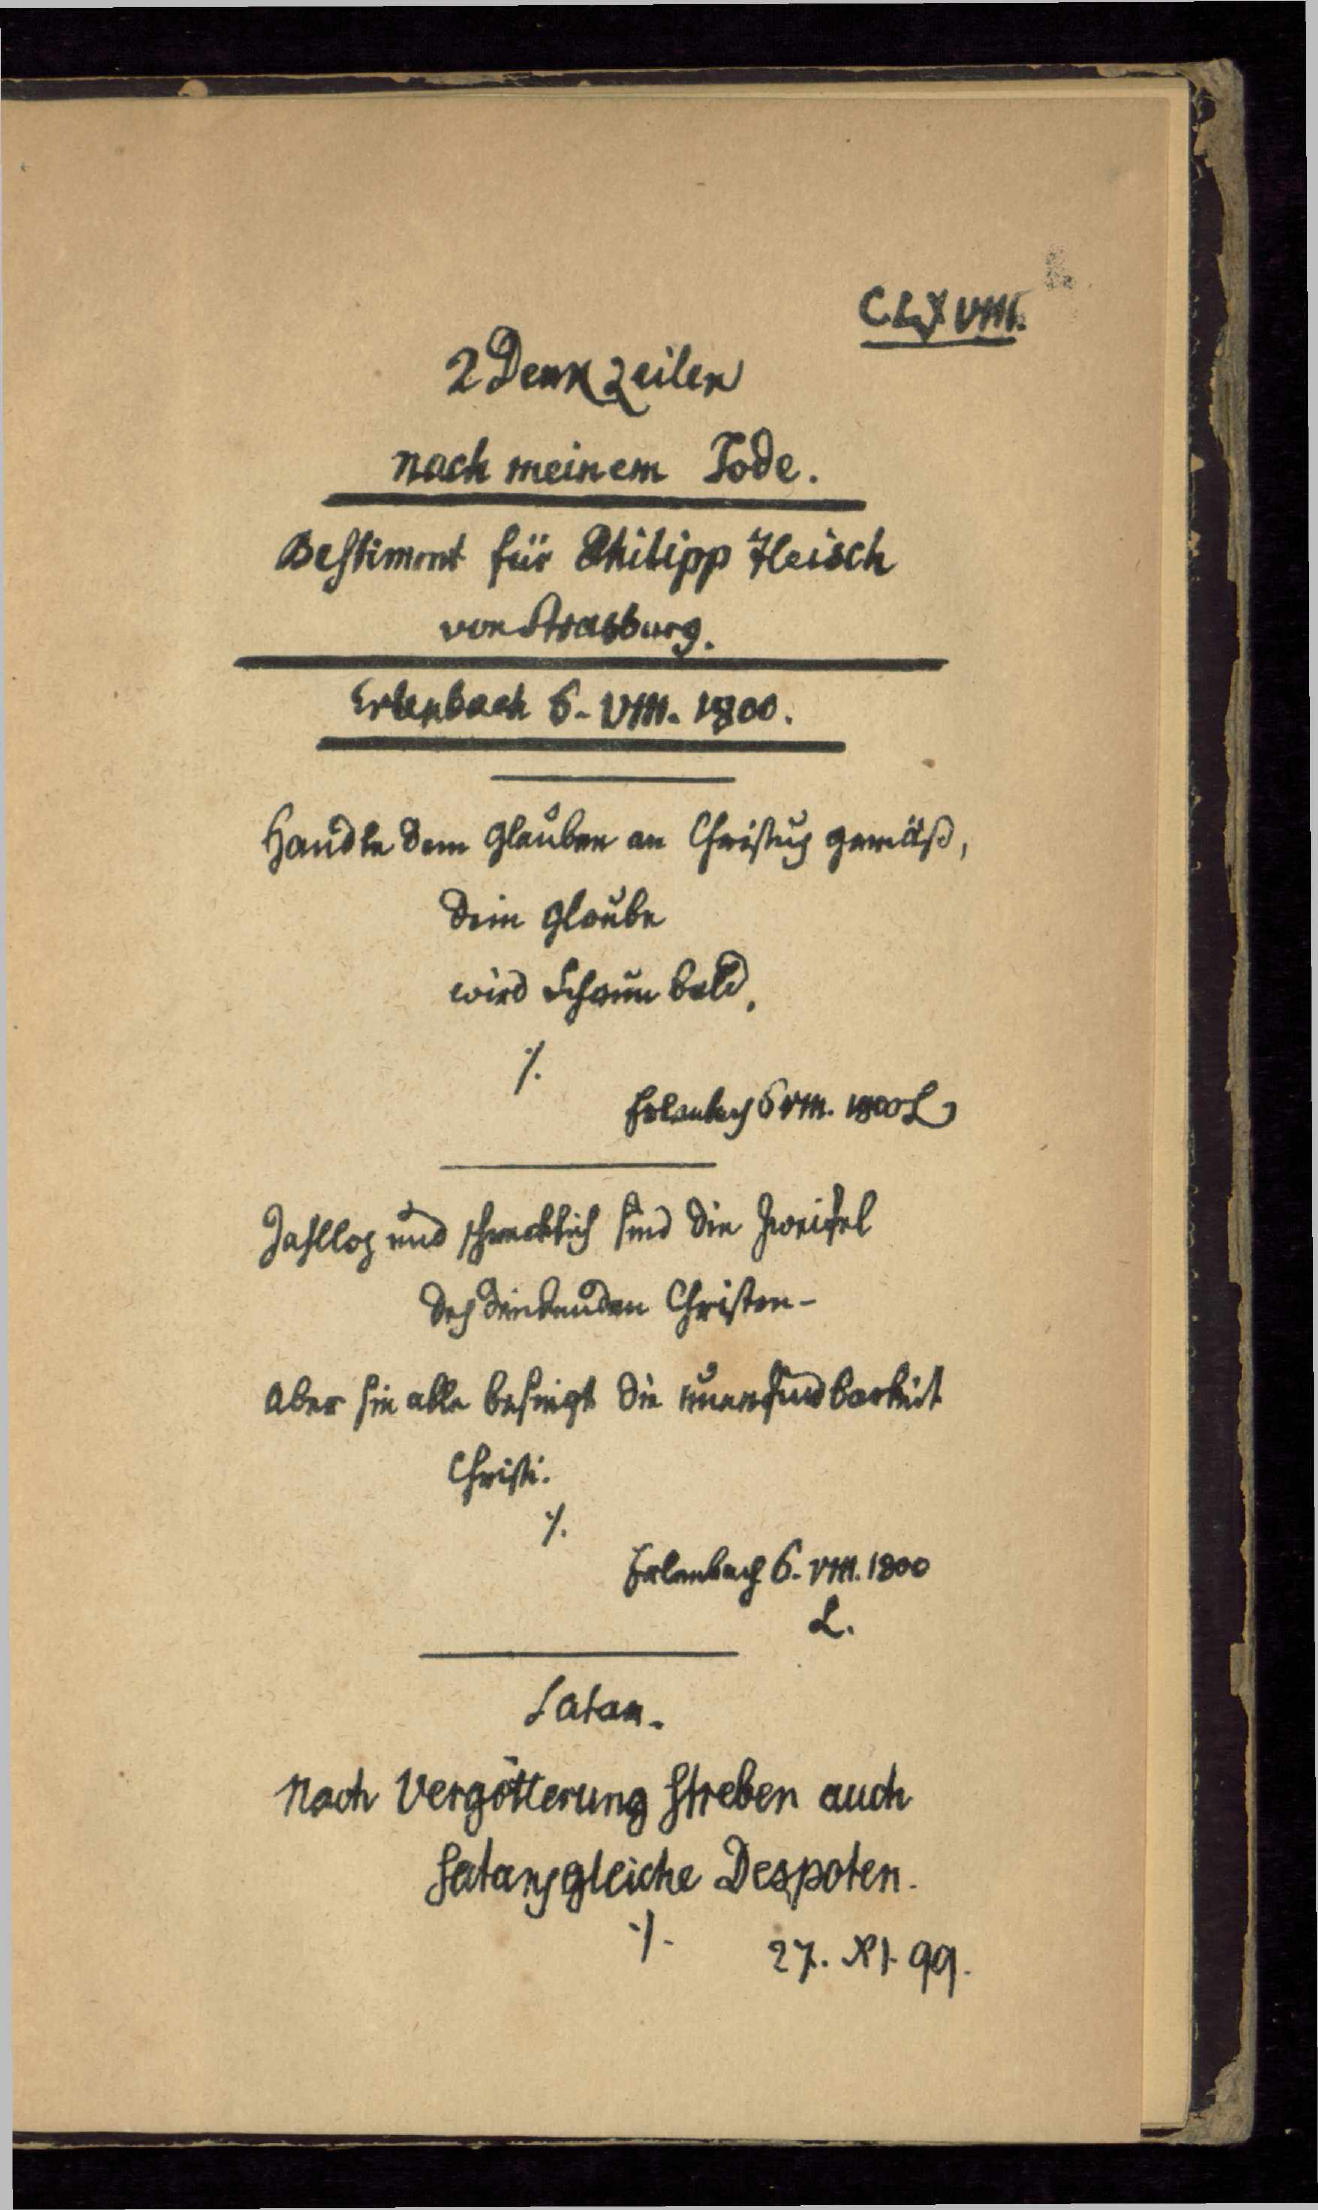 CLXVIII.
2 Denkzeilen
nach meinem Tode.
Bestimmt für Philipp Heisch
von Strasburg.
Erlenbach 6. VIII. 1800.
Handle dem Glauben an Christus gemäß,
Dein Glaube
wird Schaun bald.
./.
Erlenbach 6 VIII. 1800 L
Zahllos und schrecklich sind die Zweifel
des denkenden Christen –
Aber sie alle besiegt die unerfindbarkeit
Christi.
./.
Erlenbach 6. VIII. 1800
L.
Satan.
Nach Vergötterung streben auch
satansgleiche Despoten.
./.
27. XI. 99.